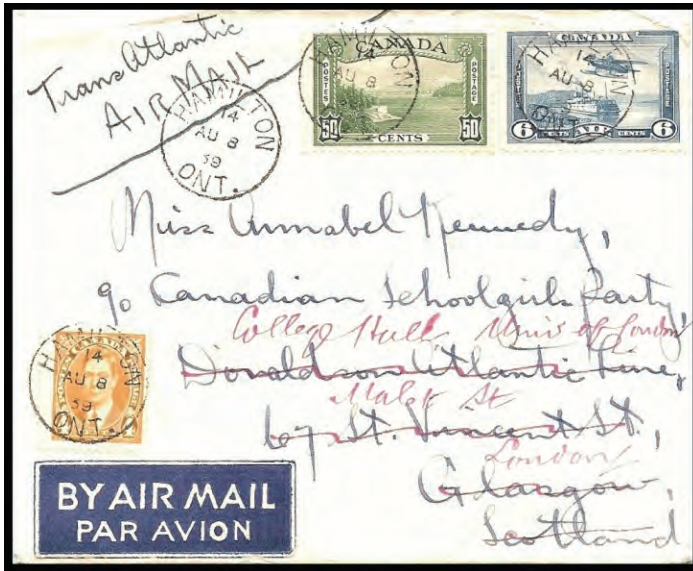 Trans Atlantic
AIR MAIL
HAMILTON
14
AU 8
39
ONT.
HAMILTON
14
AU 8
CANADA
POSTES
POSTAGE
50 CENTS 50
HAMILTON
14
AU 8
ONT.
CANADA
6 CENTS CENTS 6
Miss Annabel Kennedy,
c/o Canadian Schoolgirls Party,
College Hall, Univ of London
Donaldson Atlantic Line,
Malet St
67 St. Vincent St.,
London
Glasgow,
Scotland
HAMILTON
14
AU 8
39
ONT.
BY AIR MAIL
PAR AVION